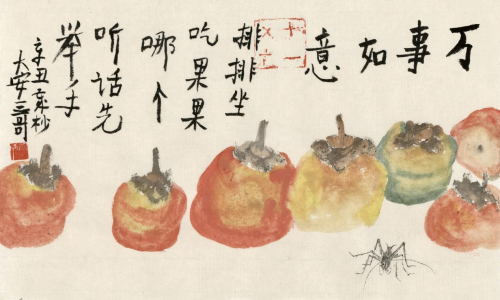 万事如意
排排坐
吃果果
哪个
听话先
举手
辛丑岁杪
大安三哥